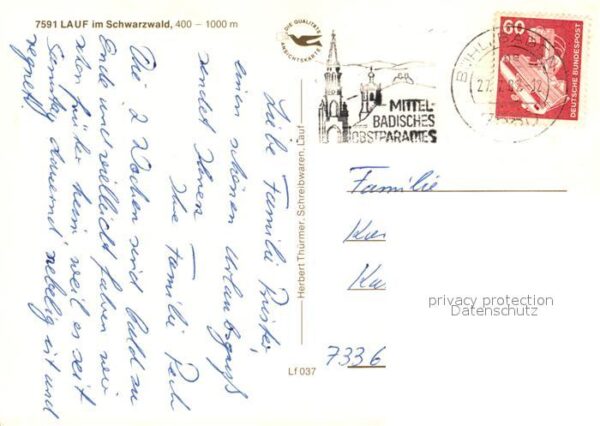 7591 LAUF im Schwarzwald, 400 – 1000 m
DIE QUALITÄTS
ANSICHTSKARTE
Liebe Familie
einen schönen Urlaubsgruß
sendet Ihnen
Ihre Familie
Die 2 Wochen sind bald zu
Ende und vielleicht fahren wir
schon früher heim weil es seit
Samstag dauernd nebelig ist und
regnet
Herbert Thürmer, Schreibwaren, Lauf
Lf 037
MITTEL-
BADISCHES
OBSTPARADIES
60
DEUTSCHE BUNDESPOST
Familie
Ka
7336
privacy protection
Datenschutz